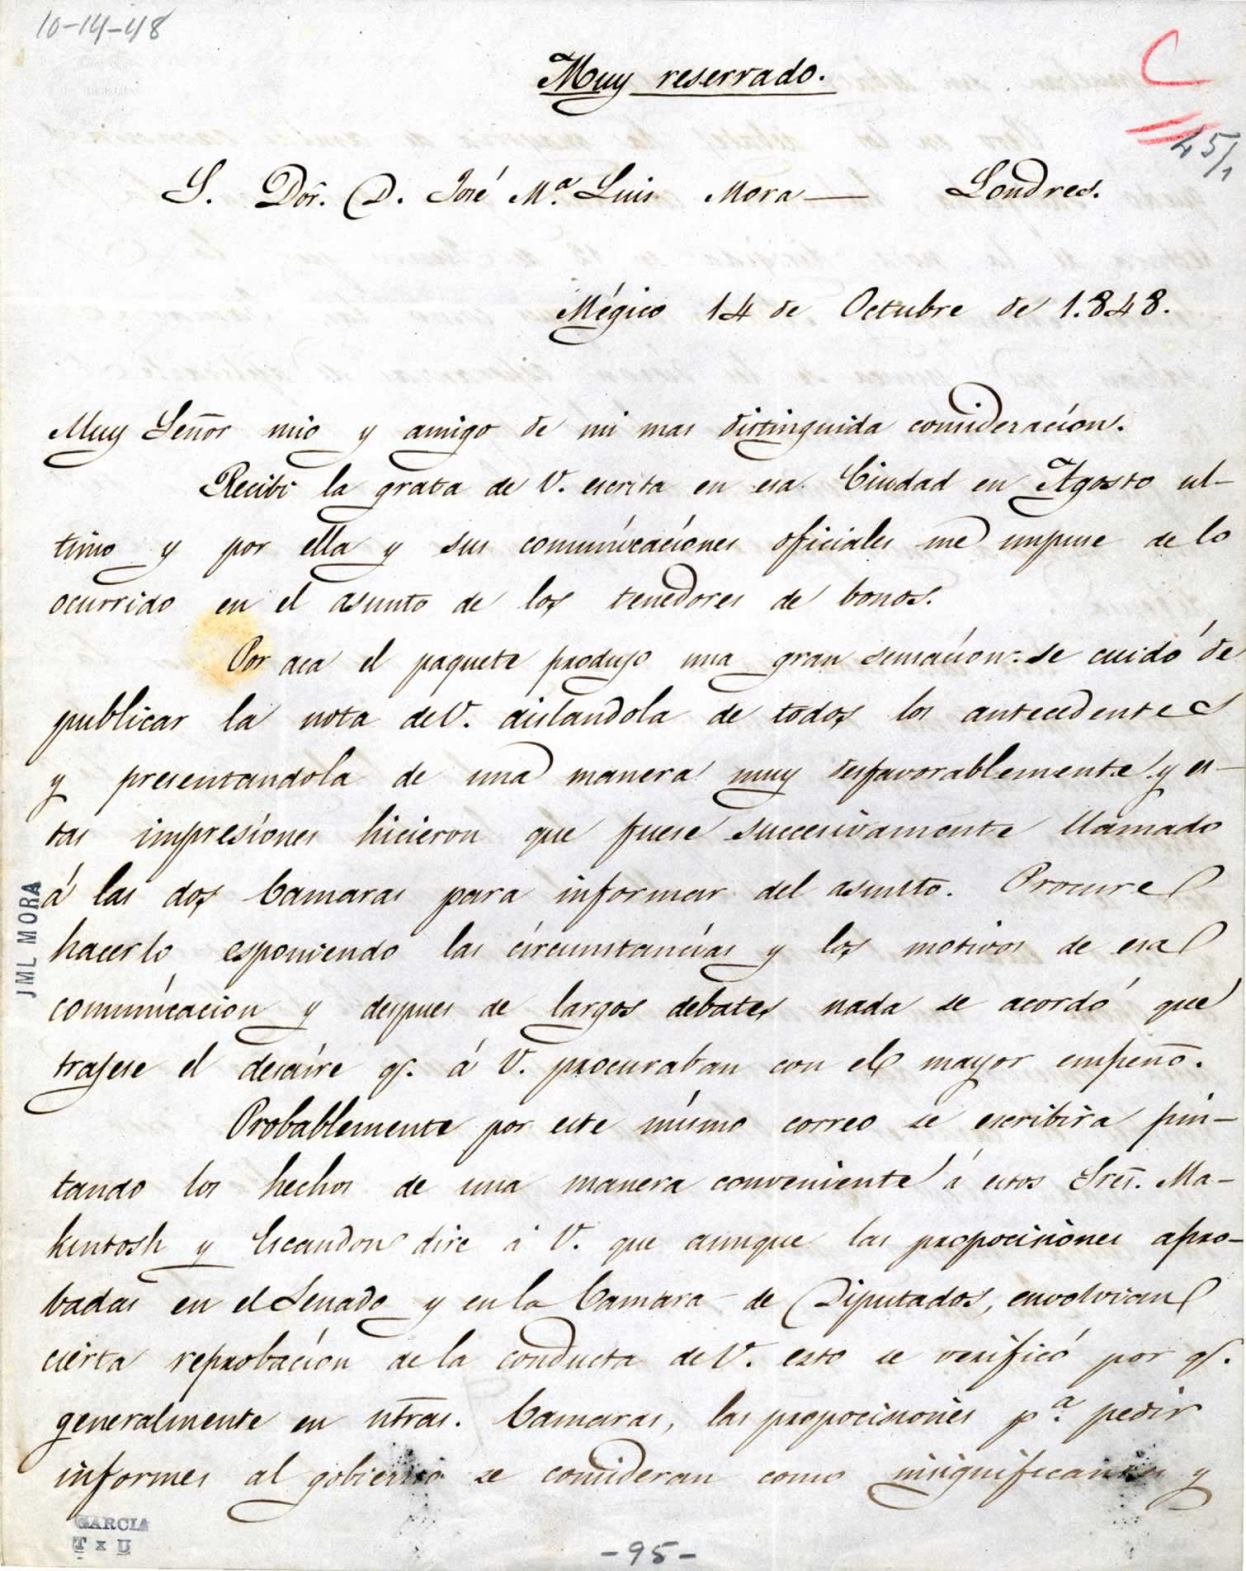 10-14-48
C
Muy reservado.
45/1
S. Dor. D. José Ma. Luis Mora — Londres.
Mégico 14 de Octubre de 1.848.
Muy Señor mio y amigo de mi mas distinguida consideracion.
Recibi la grata de V. escrita en esa Ciudad en Agosto ul-
timo y por ella y sus comunicaciones oficiales me impuse de lo
ocurrido en el asunto de los tenedores de bonos.
Por aca el paquete produjo una gran sensacion: se cuidó de
publicar la nota de V. aislandola de todos los antecedentes
y presentandola de una manera muy desfavorablemente y es-
tas impresiones hicieron que fuese succesivamente llamado
á las dos Camaras para informar del asunto. Procuré
hacerlo esponiendo las circunstancias y los motivos de esa
comunicacion y despues de largos debates nada se acordó que
trajese el desaire q. á V. procuraban con el mayor empeño.
Probablemente por este mismo correo se escribira pin-
tando los hechos de una manera conveniente á estos Sres. Ma-
kintosh y Escandon dire á V. que aunque las proposiciones apro-
badas en el Senado y en la Camara de Diputados, envolvian
cierta reprobacion de la conducta de V. esto se verificó por q.
generalmente en ntras. Camaras, las proposiciones pa. pedir
informes al gobierno se consideran como insignificantes y
JML MORA
GARCIA
T x U
-95-